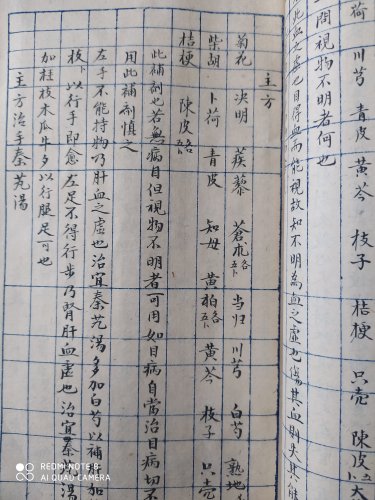 荷 川芎 青皮 黄芩 枝子 桔梗 只壳 陳皮 五卜 大
一問視物不明者何也
此血之虚也目得血而能視故知不明為血之虚也傷其血則失其能
主方
菊花 决明 蒺藜 蒼朮 各五卜 当归 川芎 白芍 熟地
柴胡 卜荷 青皮 知母 黄柏 各五卜 黄芩 枝子 只壳
桔梗 陳皮 各五
此補剂也若無病目但視物不明者可用如目病自當治目病切不
用此補剂慎之
左手不能持物乃肝血之虚也治宜秦艽湯多加白芍以補肝加
枝卜以行手即愈左足不得行步乃腎肝血虚也治宜秦艽湯
加桂枝木瓜牛夕以行腿足可也
主方治手秦艽湯
REDMI NOTE 8
AI QUAD CAMERA